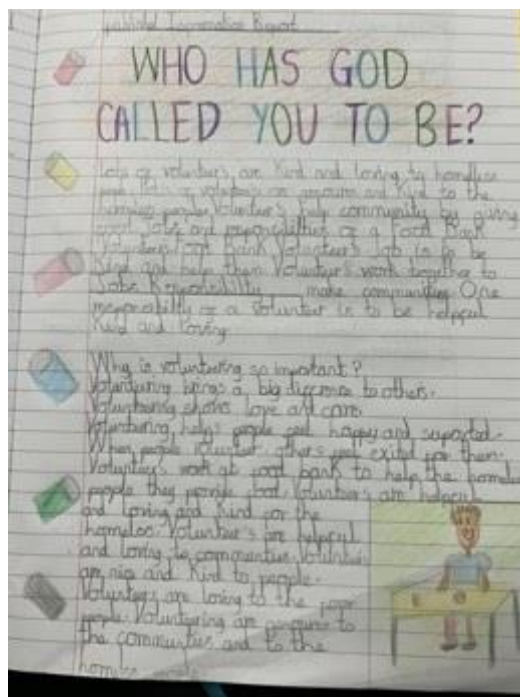 Information Report
WHO HAS GOD
CALLED YOU TO BE?
Lots of volunteers are kind and loving to homeless
Lots of volunteers are generous and kind to the
homeless people. Volunteer's help community by giving
food Jobs and responsibilities of a Food Bank
Volunteers Foot Bank Volunteer's Job is to be
kind and help them Volunteer's work together to
Jobs Responsibility make communities One
responsibility of a volunteer is to be helpful
kind and loving
Why is volunteering so important?
Volunteering brings a big difference to others.
Volunteering shows love and care
Volunteering helps people feel happy and suported.
When people volunteer other's feel exited for them.
Volunteer's work at food bank to help the homeless
people they provide food. Volunteer's are helpful
and loving and kind for the
homeless. Volunteer's are helpful
and loving to communities Volunteer
are nice and kind to people.
Volunteers are loving to the poor
people. Volunteering are generous to
the communities and to the
homeless